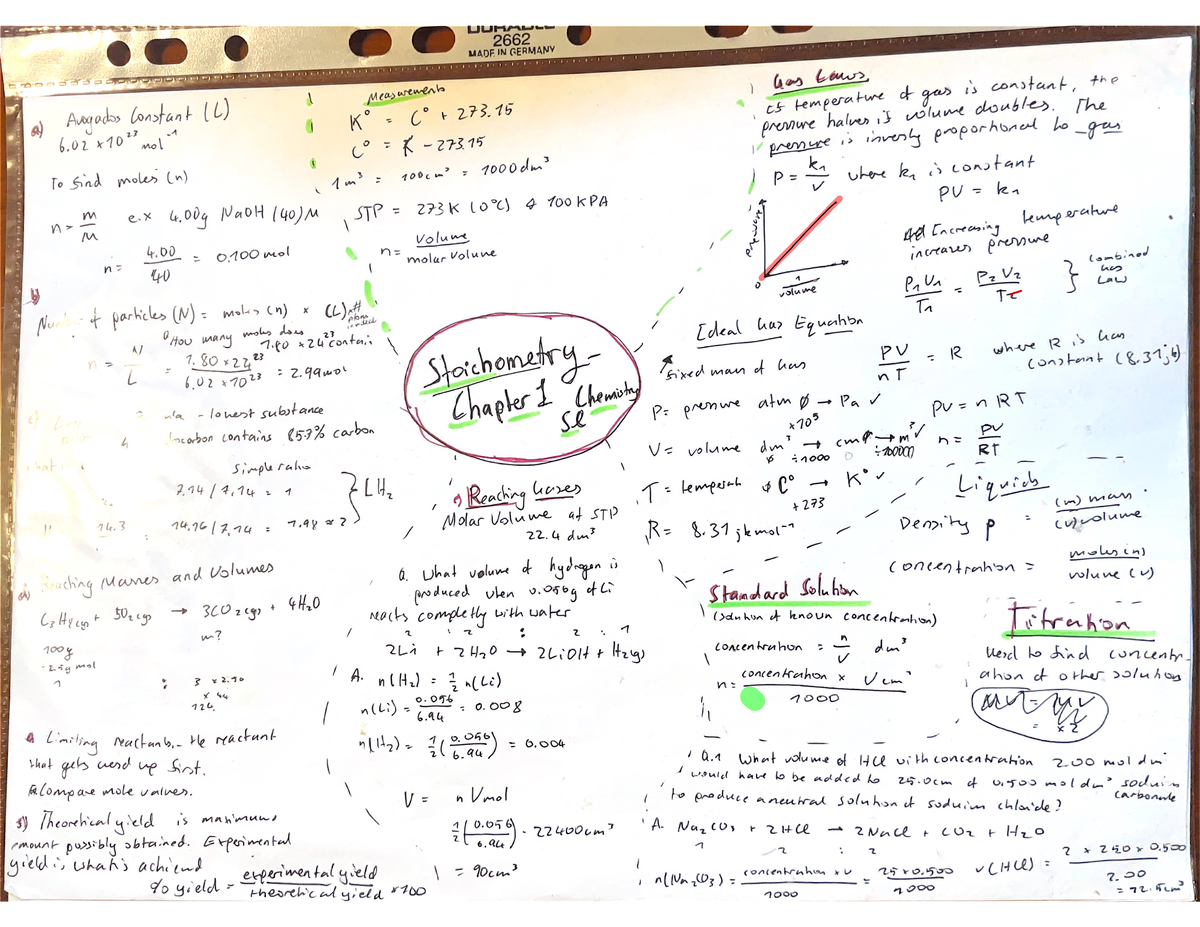 DURABLE
2662
MADE IN GERMANY
a) Avogados Constant (L)
6.02 x 10²³ mol⁻¹
To find moles (n)
n = m/M e.x 4.00g NaOH (40) M
n = 4.00/40 = 0.100 mol
b)
Number of particles (N) = moles (n) x (L)
How many moles does
1.80 x 24²³ contain
n = N/L = 1.80 x 22²³/6.02 x 10²³ = 2.99 mol
- lowest substance
contains 85.7% carbon
Simple ratio
7.14 / 7.14 = 1
14.3 14.16 / 7.14 = 1.98 ≈ 2
} CH₂
d) Reacting Masses and Volumes
C₃H₈(g) + 5O₂(g) → 3CO₂(g) + 4H₂O
m?
100g
1 : 3 x 2.50
x 44
e Limiting reactants - the reactant
that gets used up first.
Compare mole values.
f) Theoretical yield is maximum
amount possibly obtained. Experimental
yield is what is achieved
% yield = experimental yield/theoretical yield x 100
Measurements
K° = C° + 273.15
C° = K - 273.15
1m³ = 100cm³ = 1000dm³
STP = 273K (0°C) & 100KPA
n = Volume/molar volume
Stoichometry -
Chapter 1 Chemistry
SL
g) Reacting Gases
Molar Volume at STP
22.4 dm³
Q. What volume of hydrogen is
produced when 0.056g of Li
reacts completly with water
2 : 2 : 2 : 1
2Li + 2H₂O → 2LiOH + H₂(g)
A. n(H₂) = 1/2 n(Li)
n(Li) = 0.056/6.94 = 0.008
n(H₂) = 1/2 (0.056/6.94) = 0.004
V = n Vmol
1/2 (0.056/6.94) · 22400cm³
= 90cm³
Gas Laws
If temperature of gas is constant, the
pressure halves if volume doubles. The
pressure is inversly proportional to gas
P = k₁/V where k₁ is constant
PV = k₁
Pressure
0
1/volume
Increasing temperature
increases pressure
P₁V₁/T₁ = P₂V₂/T₂ } Combined
Gas
Law
Ideal Gas Equation
fixed mass of Gas
PV/nT = R where R is Gas
constant (8.31 j k)
P = pressure atm → Pa ✓
x10⁵
PV = nRT
V = volume dm³ → cm³ → m³ ✓
÷1000
n = PV/RT
T = temperatr C° → K° ✓
+273
R = 8.31 jkmol⁻¹
Liquids
Density p = (m) mass/(v) volume
concentration = moles (n)/volume (v)
Standard Solution
(solution of known concentration)
concentration = n/V dm³
n = concentration x Vcm³/1000
Titration
Used to find concentr-
ation of other solution
Q.1 What volume of HCl with concentration 2.00 mol dm³
would have to be added to 25.0cm of 0.500 mol dm³ soduim
carbonate
to produce a neutral solution of soduim chloride?
A. Na₂CO₃ + 2HCl → 2NaCl + CO₂ + H₂O
1 2 : 2
n(Na₂CO₃) = concentration x v/1000 = 25 x 0.500/1000
v(HCl) = 2 x 250 x 0.500/2.00
= 12.5cm³